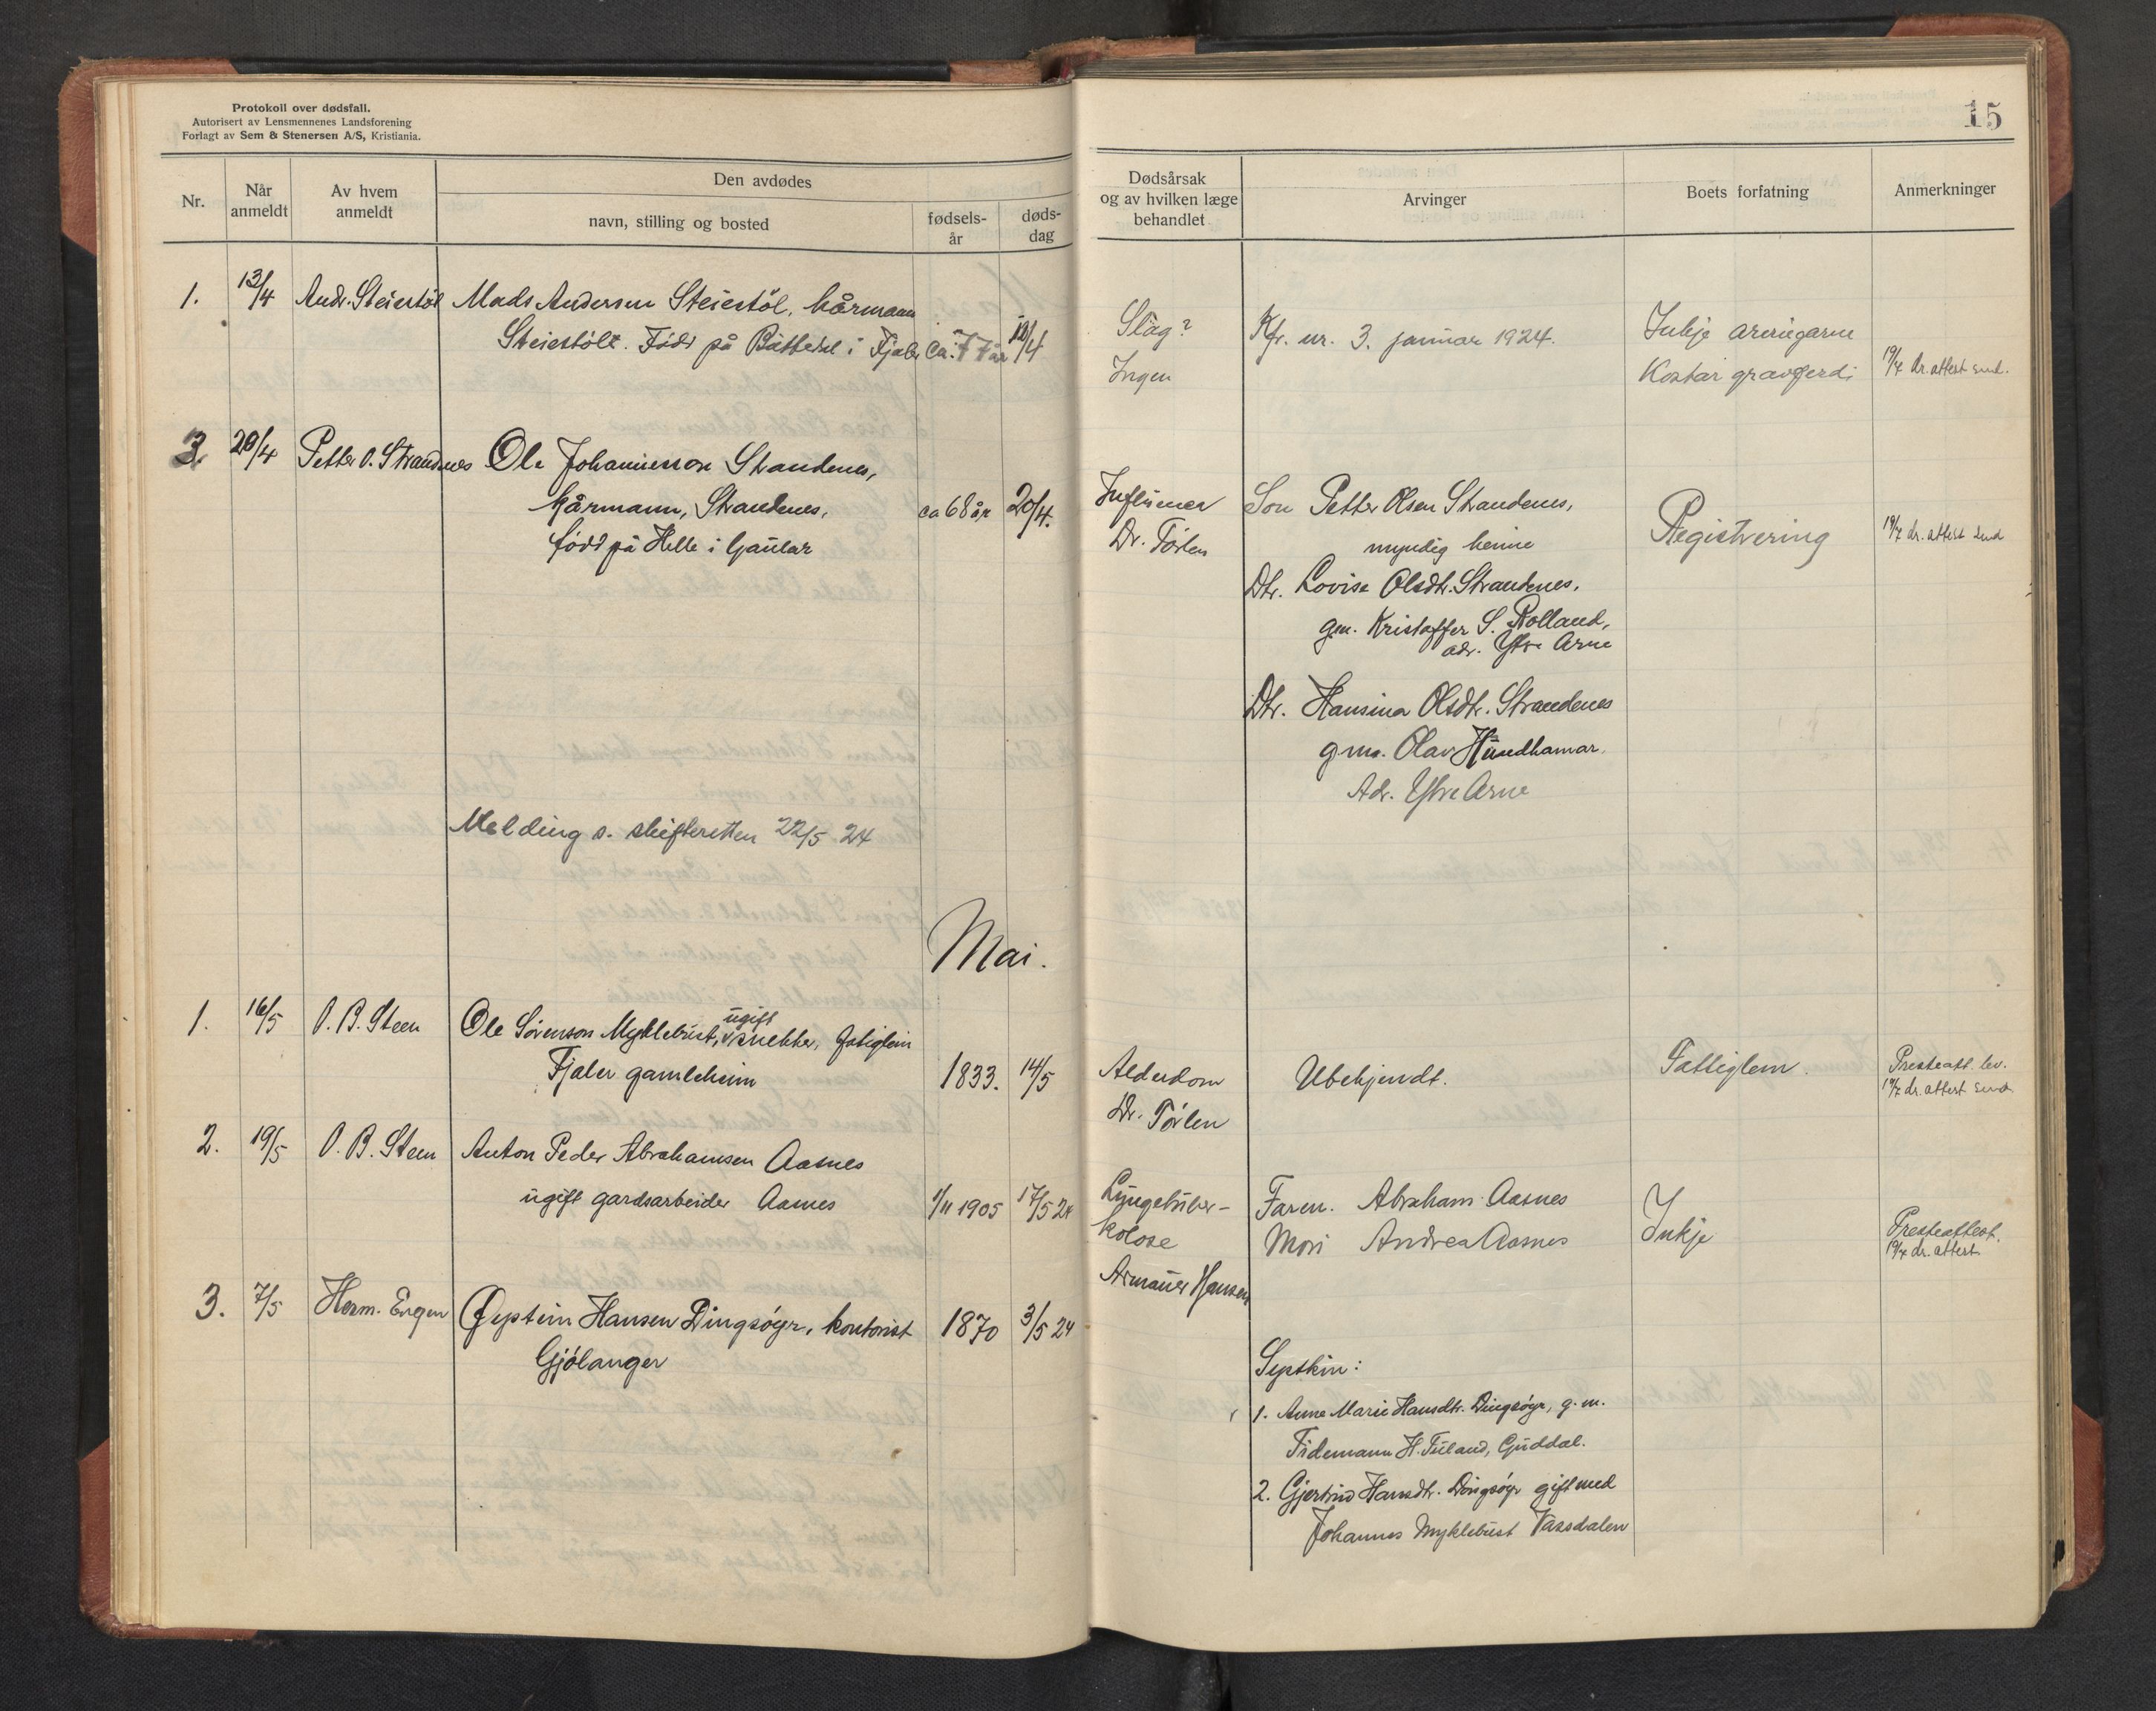 Protokoll over dødsfall.
Autorisert av Lensmennenes Landsforening
Forlagt av Sem & Stenersen A/S, Kristiania.
Nr.
Når anmeldt
Av hvem anmeldt
Den avdødes
navn, stilling og bosted
fødsels-år
døds-dag
1. 13/4 Andr. Steiestøl Mads Andersen Steiestøl, kårmann
Steiestølt. Født på i Fjaler ca. 77 år 12/4
3. 20/4 Petter O. Strandenes Ole Johannesson Strandenes,
kårmann, Strandenes, ca 68 år 20/4.
född på Helle i Gaular
Melding s. skifteretten 22/5 24
Mai.
1. 16/5 O. B. Steen Ole Sørenson Myklebust, ugift snekker, fatiglem
Fjaler gamleheim 1833. 14/5
2. 19/5 O. B. Steen Anton Peder Abrahamsen Aasnes
ugift gardsarbeider Aasnes 1/11 1905 17/5 24
3. 7/5 Herm. Engen Øystein Hansen Dingsøyr, kontorist 1870 3/5 24
Gjølanger
15
Dødsårsak
og av hvilken læge
behandlet
Arvinger
Boets forfatning
Anmerkninger
Slag? Kfr. nr. 3. januar 1924. Inkje
Ingen Kostar gravferdi 19/7 dr. attest send.
Influensa Son Petter Olsen Strandenes,
Dr. Tørlen myndig heime Registrering 19/7 dr. attest send
Dtr. Lovise Olsdtr. Strandenes,
gm. Kristoffer S. Rolland,
adr. Ytre Arne
Dtr. Hansina Olsdtr. Strandenes
gm. Olav Hundhamar.
Adr. Ytre Arne
Alderdom Ubekjendt. Fattiglem. Presteatt. lev.
19/7 dr. attest send.
Dr. Tørlen
Lungetuber-
kolose
Armauer Hansen
Faren. Abraham Aasnes
Mori Andrea Aasnes Inkje Presteattest.
19/7 dr. attest
Syskin:
1. Anne Marie Hansdtr. Dingsøyr, g. m.
Tidemann H. Tuland, Guddal.
2. Gjertrud Hansdtr. Dingsøyr gift med
Johannes Myklebust Vassdalen